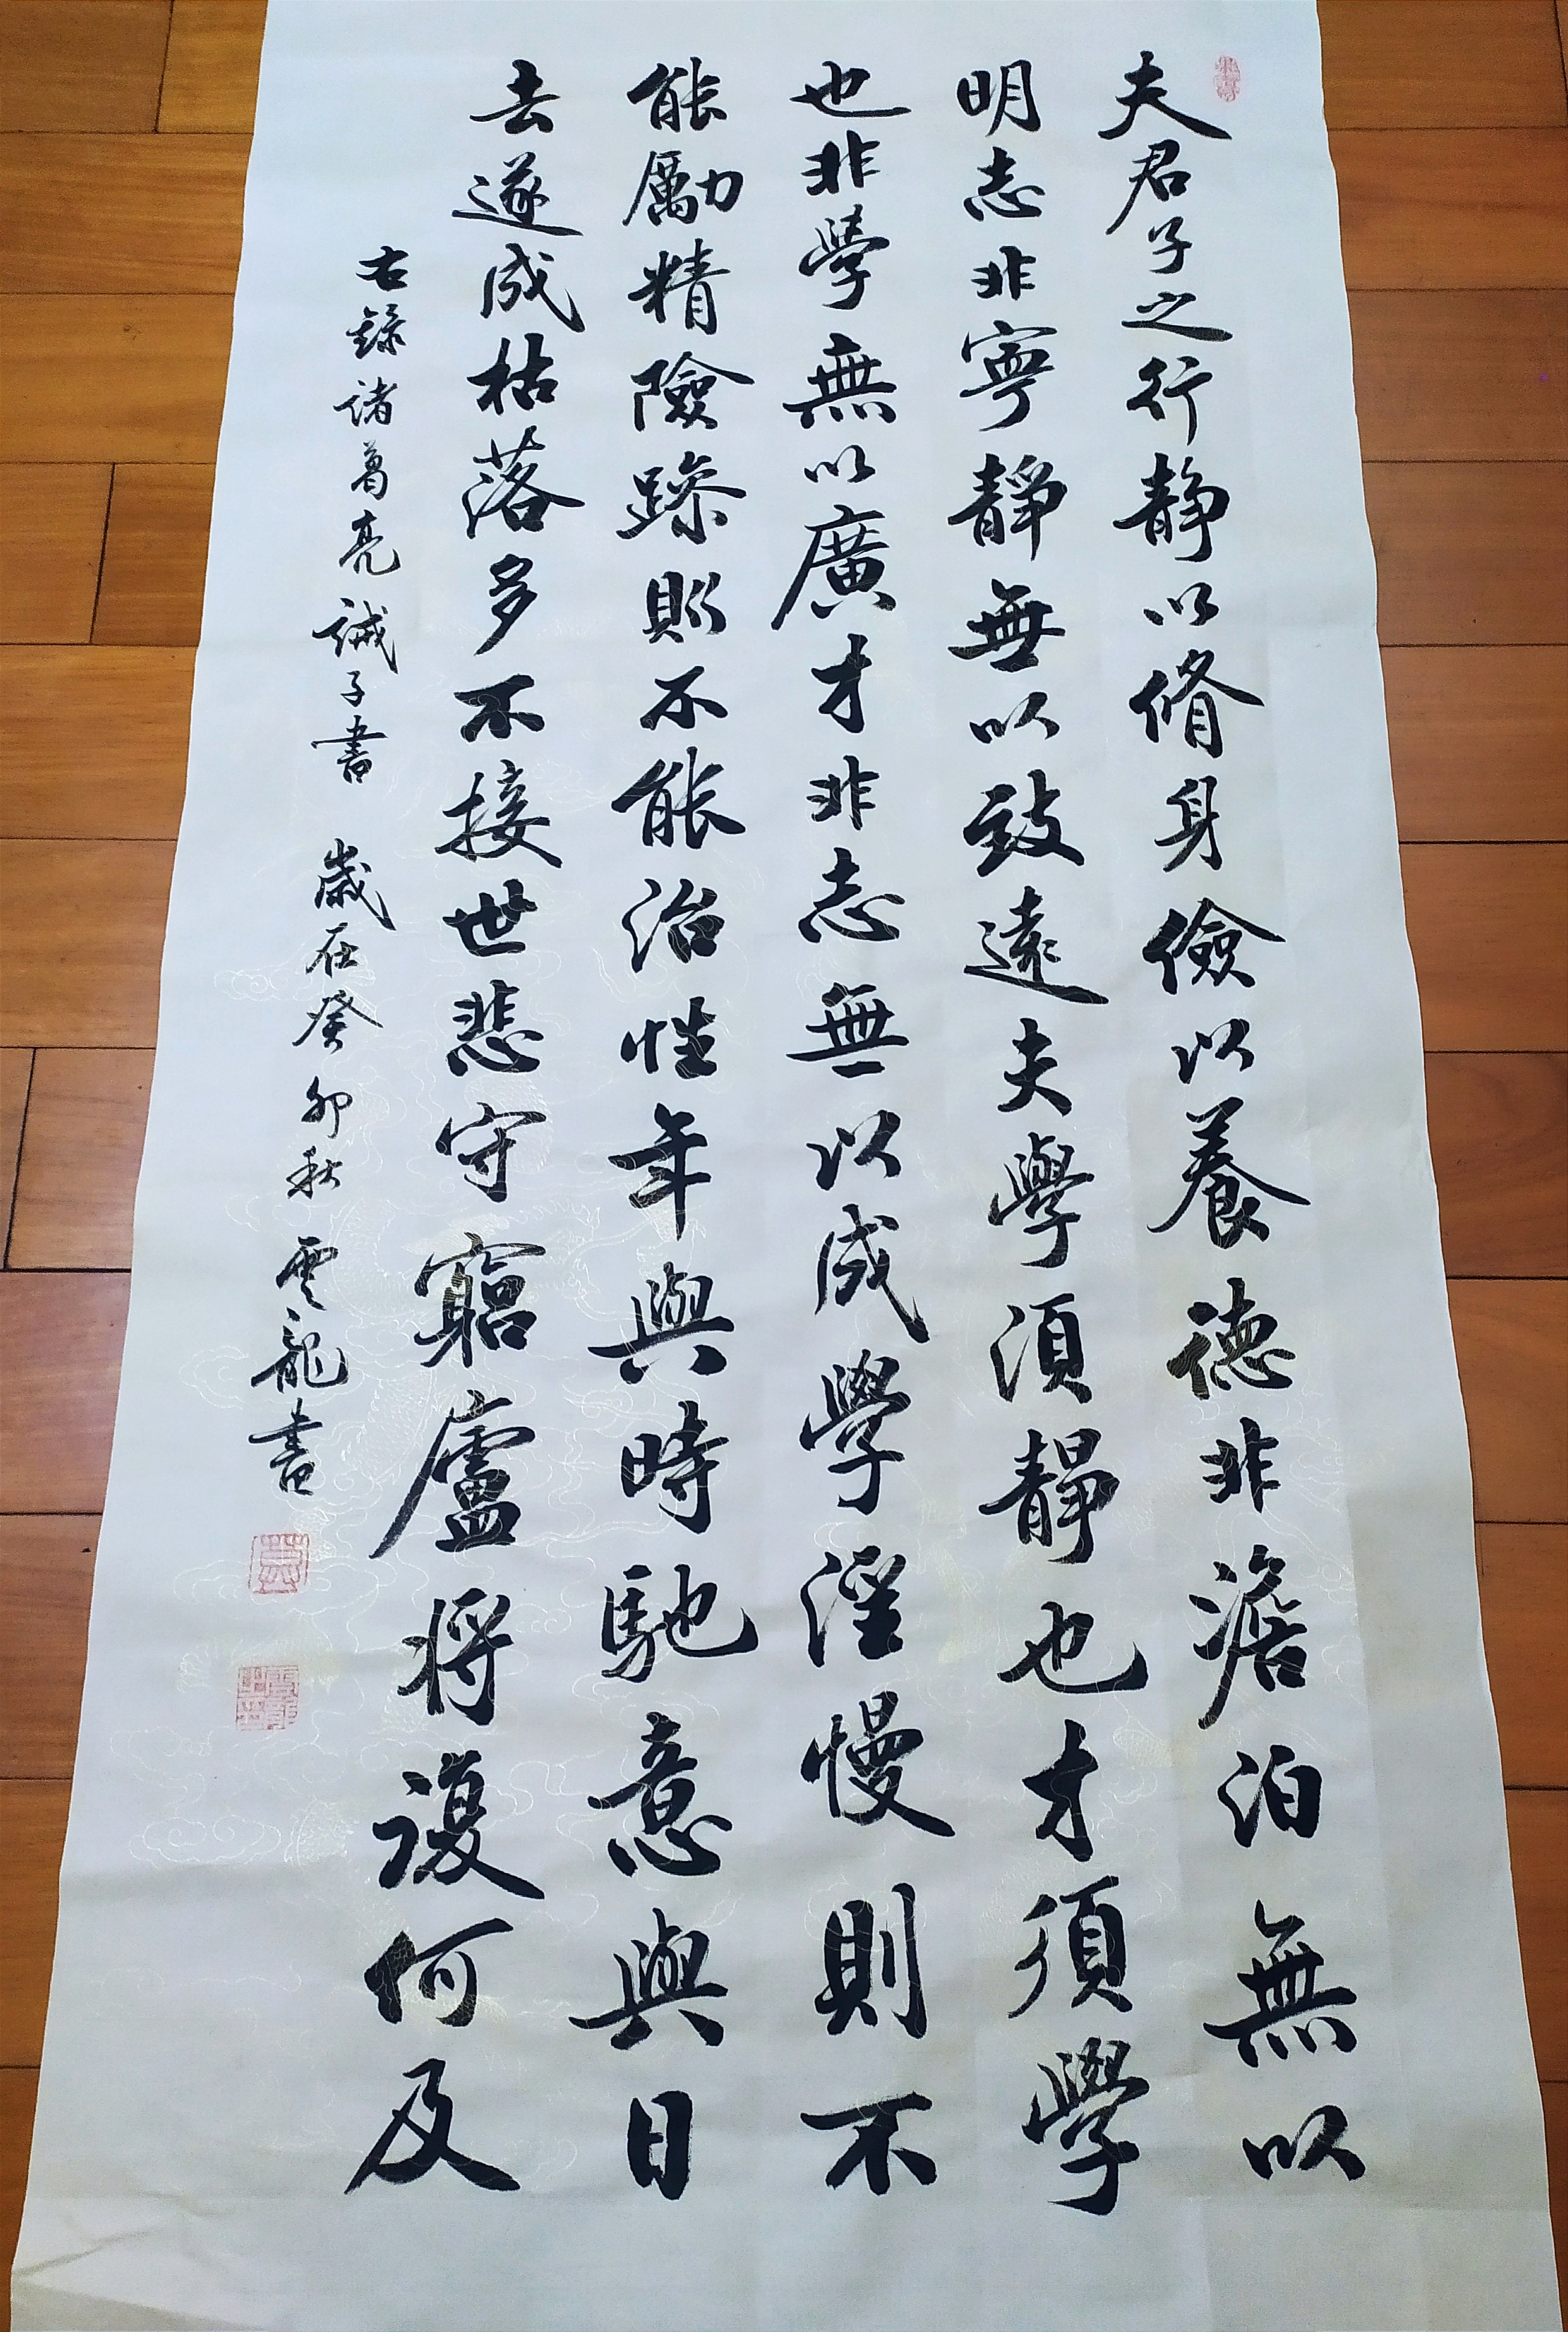 夫君子之行靜以脩身儉以養德非澹泊無以
明志非寧靜無以致遠夫學須靜也才須學
也非學無以廣才非志無以成學淫慢則不
能勵精險躁則不能治性年與時馳意與日
去遂成枯落多不接世悲守窮廬將復何及
右錄諸葛亮誡子書 歲在癸卯秋 雲龍書